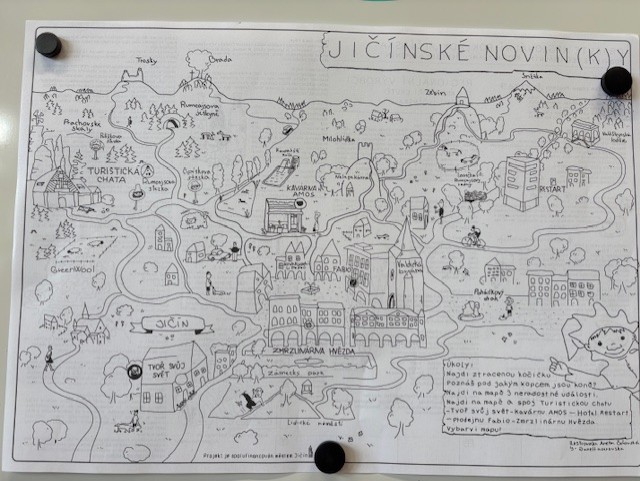 JIČÍNSKÉ NOVIN(K)Y
Trosky
Brada
Sněžka
Zebín
Rumcajsova
Jeskyně
Prachovské
skály
Milohlídka
TURISTICKÁ
CHATA
Rumcajsova
stezka
Cipískova
stezka
KAVÁRNA
AMOS
RESTART
GreenWool
FABIO
Valdická
brána
Pohádkový
JIČÍN
ZMRZLINÁRNA HVĚZDA
TVOŘ SVŮJ
SVĚT
Zámecký park
Lidické náměstí
Úkoly:
Najdi ztracenou kočičku
Poznáš pod jakým kopcem jsou koně?
Najdi na mapě 3 neradostné události.
Najdi na mapě a spoj Turistickou chatu
-Tvoř svůj svět-Kavárnu AMOS-Hotel Restart
-Prodejnu Fabio-Zmrzlinárnu Hvězda.
Vybarvi mapu!